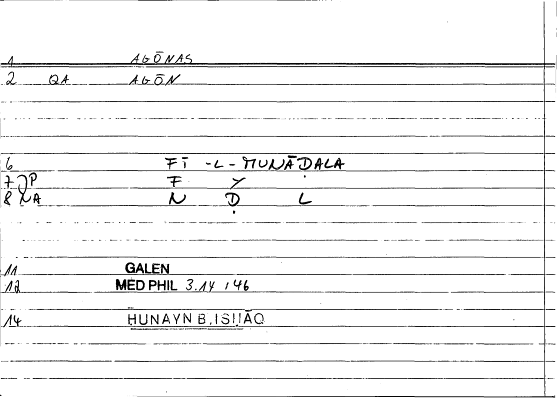 1 AGŌNAS
2 QA AGŌN
6 FĪ -L-MUNĀḌALA
7 JP F Y .
8 NA N Ḍ L
11 GALEN
12 MED PHIL 3.14 146
14 ḤUNAYN B. ISḤĀQ